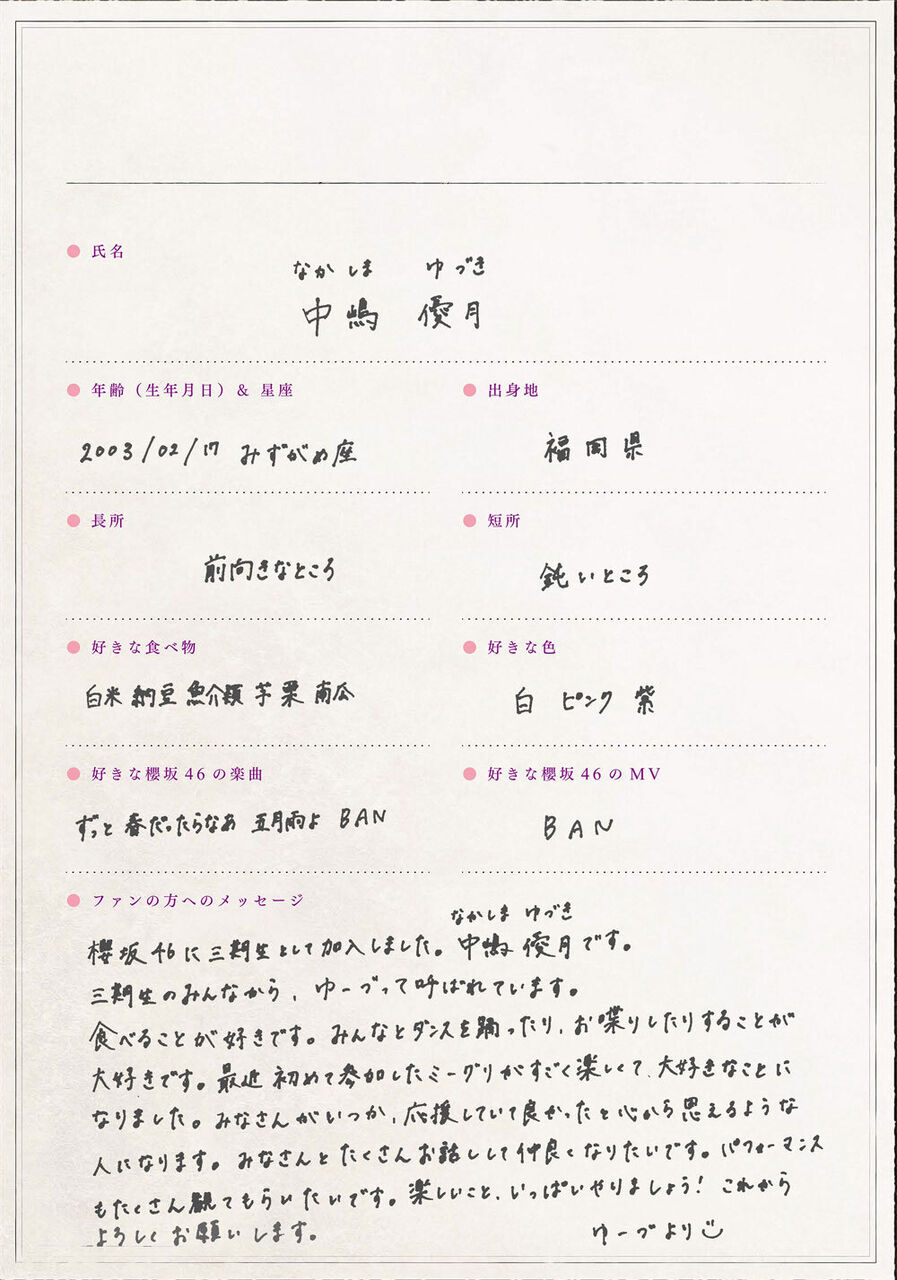 氏名
なかしま ゆづき
中嶋 優月
年齢（生年月日）& 星座
出身地
2003/02/17 みずがめ座
福岡県
長所
短所
前向きなところ
鈍いところ
好きな食べ物
好きな色
白米 納豆 魚介類 芋 栗 南瓜
白 ピンク 紫
好きな櫻坂46の楽曲
好きな櫻坂46のMV
ずっと 春だったらなあ 五月雨よ BAN
BAN
ファンの方へのメッセージ
なかしま ゆづき
櫻坂46に三期生として加入しました。中嶋 優月です。
三期生のみんなから、ゆーづって呼ばれています。
食べることが好きです。みんなとダンスを踊ったり、お喋りしたりすることが
大好きです。最近 初めて参加したミーグリがすごく楽しくて、大好きなことに
なりました。みなさんがいつか、応援していて良かったと心から思えるような
人になります。みなさんとたくさんお話しして仲良くなりたいです。パフォーマンス
もたくさん観てもらいたいです。楽しいこと、いっぱいやりましょう！これから
よろしくお願いします。 ゆーづより